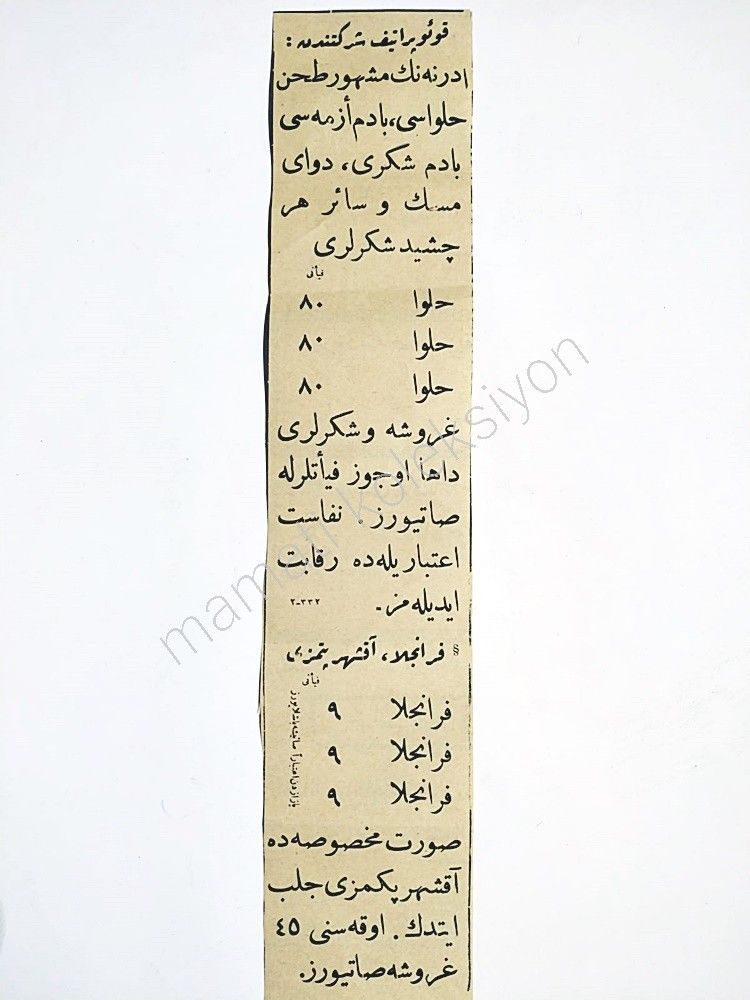 قوئوپراتیف شرکتندن :
ادرنه نك مشهور طحن
حلواسی، بادم أزمه سی
بادم شکری، دوای
مسك و سائر هر
چشید شکرلری
فیأتی
حلوا ۸۰
حلوا ۸۰
حلوا ۸۰
غروشه و شکرلری
داها اوجوز فیأتلرله
صاتیورز. نفاست
اعتباریله ده رقابت
ایدیله مز. ۲-۳۳۲
§ فرانجلا، آقشهر پكمزی
فیأتی
فرانجلا ۹
فرانجلا ۹
فرانجلا ۹
بازاردن اعتباراً صاتیشه باشلایورز
صورت مخصوصه ده
آقشهر پکمزی جلب
ایتدك. اوقه سنی ٤٥
غروشه صاتیورز.
mamati koleksiyon